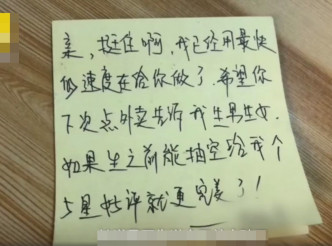 亲，挺住啊，我已经用最快
的速度在给你做了，希望你
下次点外卖告诉我生男生女.
如果生之前能抽空给我个
5星好评就更完美了！